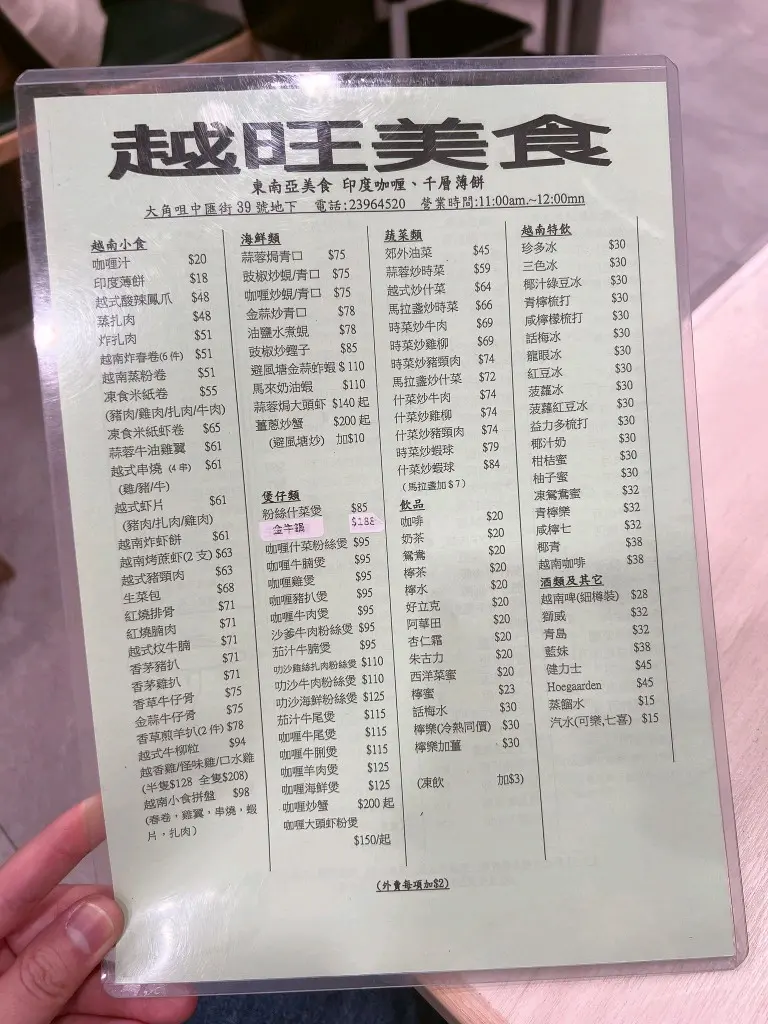 越旺美食
東南亞美食 印度咖喱、千層薄餅
大角咀中匯街 39 號地下 電話:23964520 營業時間:11:00am.~12:00mn
越南小食
咖喱汁 $20
印度薄餅 $18
越式酸辣鳳爪 $48
蒸扎肉 $48
炸扎肉 $51
越南炸春卷(6件) $51
越南蒸粉卷 $51
凍食米紙卷 $55
(豬肉/雞肉/扎肉/牛肉)
凍食米紙虾卷 $65
蒜蓉牛油雞翼 $61
越式串燒 (4串) $61
(雞/豬/牛)
越式虾片 $61
(豬肉/扎肉/雞肉)
越南炸虾餅 $61
越南烤蔗虾(2 支) $63
越式豬頸肉 $63
生菜包 $68
紅燒排骨 $71
紅燒腩肉 $71
越式炆牛腩 $71
香茅豬扒 $71
香茅雞扒 $71
香草牛仔骨 $75
金蒜牛仔骨 $75
香草煎羊扒(2 件) $78
越式牛柳粒 $94
越香雞/怪味雞/口水雞
(半隻$128 全隻$208)
越南小食拼盤 $98
(春卷，雞翼，串燒，蝦
片，扎肉)
海鮮類
蒜蓉焗青口 $75
豉椒炒蜆/青口 $75
咖喱炒蜆/青口 $75
金蒜炒青口 $78
油鹽水煮蜆 $78
豉椒炒蟶子 $85
避風塘金蒜炸蝦 $110
馬來奶油蝦 $110
蒜蓉焗大頭虾 $140 起
薑蔥炒蟹 $200 起
(避風塘炒) 加$10
煲仔類
粉絲什菜煲 $85
金牛鍋 $188
咖喱什菜粉絲煲 $95
咖喱牛腩煲 $95
咖喱雞煲 $95
咖喱豬扒煲 $95
咖喱牛肉煲 $95
沙爹牛肉粉絲煲 $95
茄汁牛腩煲 $95
叻沙雞絲扎肉粉絲煲 $110
叻沙牛肉粉絲煲 $110
叻沙海鮮粉絲煲 $125
茄汁牛尾煲 $115
咖喱牛尾煲 $115
咖喱牛脷煲 $115
咖喱羊肉煲 $125
咖喱海鮮煲 $125
咖喱炒蟹 $200 起
咖喱大頭虾粉煲
$150/起
蔬菜類
郊外油菜 $45
蒜蓉炒時菜 $59
越式炒什菜 $64
馬拉盞炒時菜 $66
時菜炒牛肉 $69
時菜炒雞柳 $69
時菜炒豬頸肉 $74
馬拉盞炒什菜 $72
什菜炒牛肉 $74
什菜炒雞柳 $74
什菜炒豬頸肉 $74
時菜炒蝦球 $79
什菜炒蝦球 $84
(馬拉盞加 $7)
飲品
咖啡 $20
奶茶 $20
鴛鴦 $20
檸茶 $20
檸水 $20
好立克 $20
阿華田 $20
杏仁霜 $20
朱古力 $20
西洋菜蜜 $20
檸蜜 $23
話梅水 $30
檸樂(冷熱同價) $30
檸樂加薑 $30
(凍飲 加$3)
越南特飲
珍多冰 $30
三色冰 $30
椰汁綠豆冰 $30
青檸梳打 $30
咸檸檬梳打 $30
話梅冰 $30
龍眼冰 $30
紅豆冰 $30
菠蘿冰 $30
菠蘿紅豆冰 $30
益力多梳打 $30
椰汁奶 $30
柑桔蜜 $30
柚子蜜 $30
凍鴛鴦蜜 $32
青檸樂 $32
咸檸七 $32
椰青 $38
越南咖啡 $38
酒類及其它
越南啤(細樽裝) $28
獅威 $32
青島 $32
藍妹 $38
健力士 $45
Hoegaarden $45
蒸餾水 $15
汽水(可樂,七喜) $15
(外賣每項加$2)